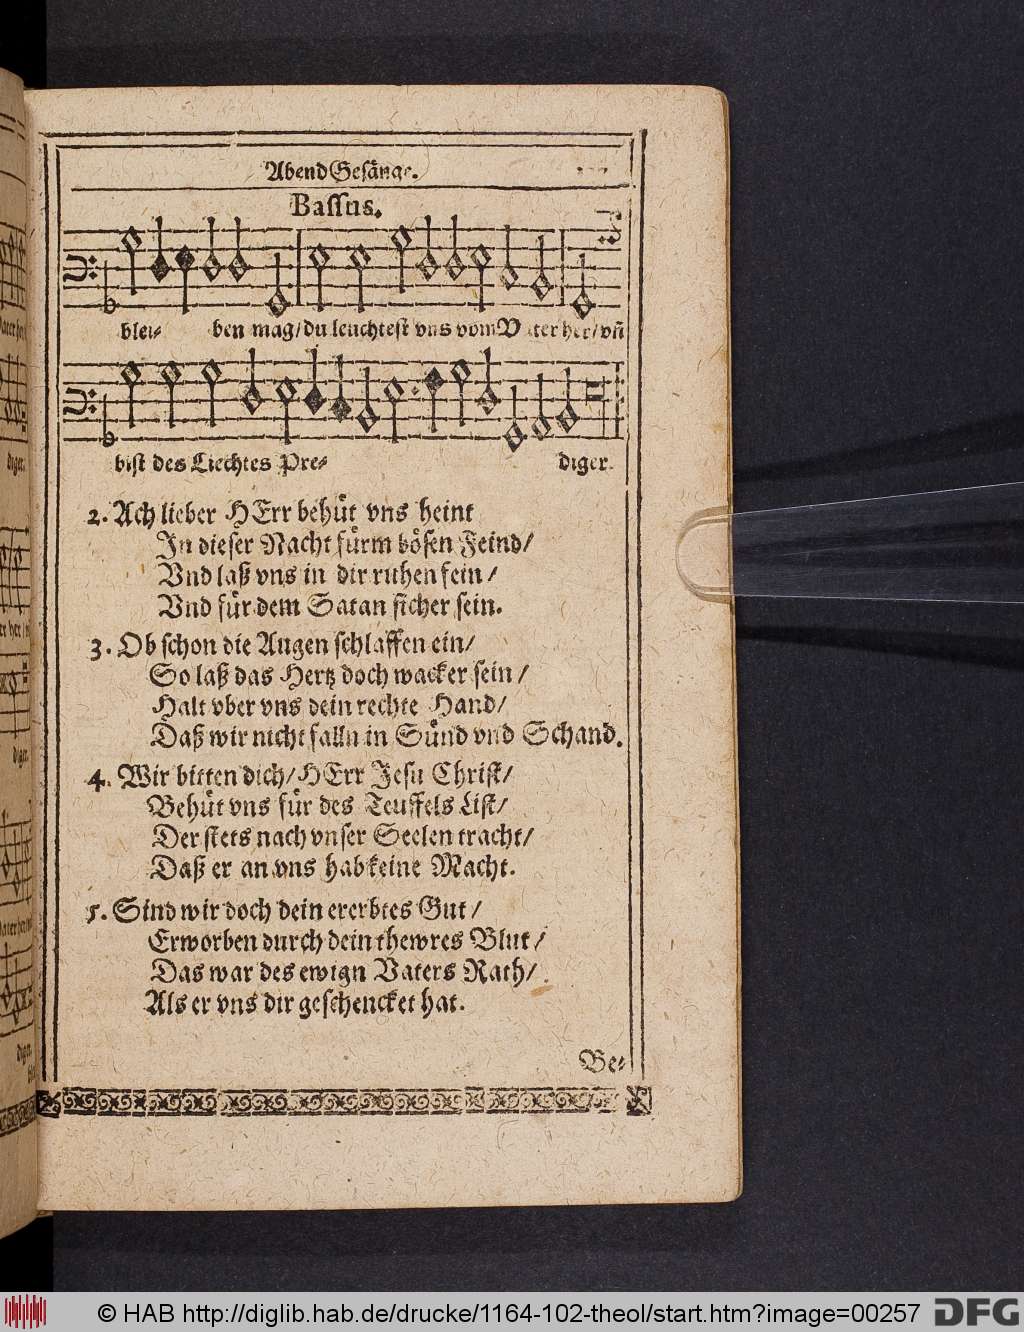 AbendGesänge.
Bassus.
blei- ben mag/du leuchtest vns vom Vater her/vñ
bist des Liechtes Pre- diger.
2. Ach lieber HErr behüt vns heint
In dieser Nacht fürm bösen Feind/
Vnd laß vns in dir ruhen fein/
Vnd für dem Satan sicher sein.
3. Ob schon die Augen schlaffen ein/
So laß das Hertz doch wacker sein/
Halt vber vns dein rechte Hand/
Daß wir nicht falln in Sünd vnd Schand.
4. Wir bitten dich/HErr Jesu Christ/
Behüt vns für des Teuffels List/
Der stets nach vnser Seelen tracht/
Daß er an vns hab keine Macht.
5. Sind wir doch dein ererbtes Gut/
Erworben durch dein thewres Blut/
Das war des ewign Vaters Rath/
Als er vns dir geschencket hat.
Be-
© HAB http://diglib.hab.de/drucke/1164-102-theol/start.htm?image=00257 DFG